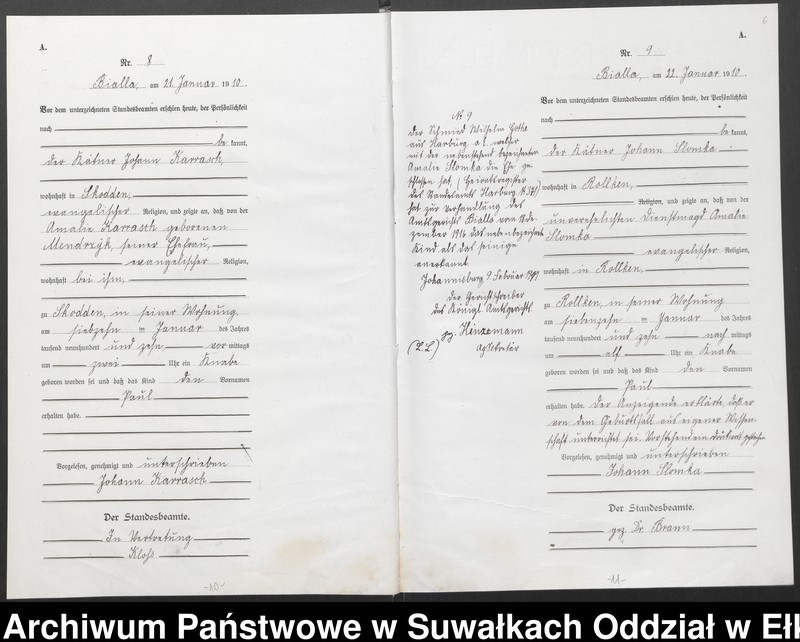 A.
Nr. 8
Bialla, am 21. Januar 1910.
Vor dem unterzeichneten Standesbeamten erschien heute, der Persönlichkeit
nach
be kannt,
der Kätner Johann Karrasch,
wohnhaft in Skodden,
evangelischer Religion, und zeigte an, daß von der
Amalie Karrasch geborenen
Mendrzyk, seiner Ehefrau,
evangelischer Religion,
wohnhaft bei ihm,
zu Skodden, in seiner Wohnung
am siebzehn ten Januar des Jahres
tausend neunhundert und zehn vor mittags
um zwei Uhr ein Knabe
geboren worden sei und daß das Kind den Vornamen
Paul
erhalten habe.
Vorgelesen, genehmigt und unterschrieben
Johann Karrasch
Der Standesbeamte.
In Vertretung
Kloß
-10-
6
A.
Nr. 9
Bialla, am 22. Januar 1910.
Vor dem unterzeichneten Standesbeamten erschien heute, der Persönlichkeit
nach
be kannt,
der Kätner Johann Slomka
wohnhaft in Rollken,
Religion, und zeigte an, daß von der
unverehelichten Dienstmagd Amalie
Slomka
evangelischer Religion,
wohnhaft in Rollken,
zu Rollken, in seiner Wohnung
am siebenzehn ten Januar des Jahres
tausend neunhundert und zehn nach mittags
um elf Uhr ein Knabe
geboren worden sei und daß das Kind den Vornamen
Paul
erhalten habe. Der Anzeigende erklärte, daß er
von dem Geburtsfall aus eigener Wissen-
schaft unterrichtet sei. Vorstehend ein Druckwort gestrichen
Vorgelesen, genehmigt und unterschrieben
Johann Slomka
Der Standesbeamte.
gez. Dr. Brann
-11-
No 9
Der Schmied Wilhelm
aus Harburg a.E. welcher
mit der nebenstehend bezeichneten
Amalie Slomka die Ehe ge-
schlossen hat, (Heiratsregister
des Standesamts Harburg
hat zur Verhandlung des
Amtsgerichts Bialla vom
zember 1916 das nebenbezeichnete
Kind als das seinige
anerkannt.
Johannisburg 9. Februar 1917
Der Gerichtsschreiber
des Königl. Amtsgerichts
gez. Hinzemann
(L.S.) Sekretär
Archiwum Państwowe w Suwałkach Oddział w Ełk